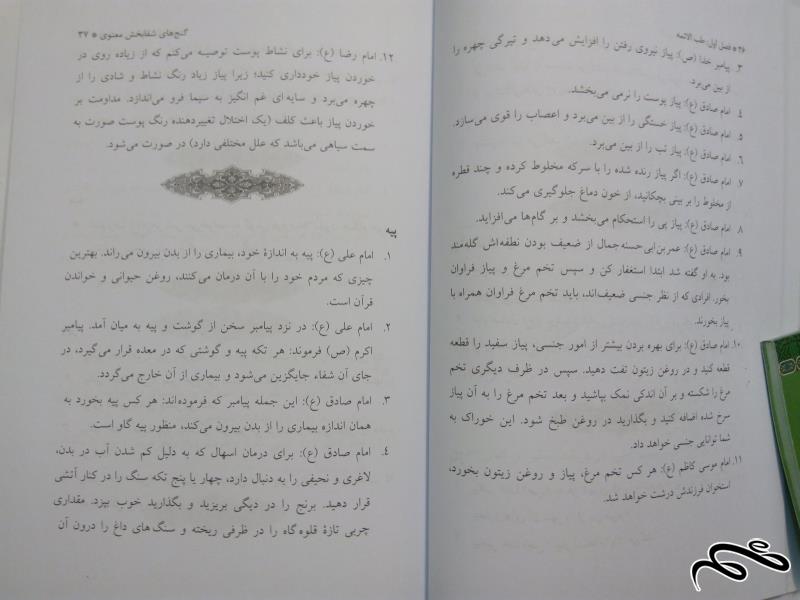 ۳۶ * فصل اول: طب الائمه
۳. پیامبر خدا (ص): پیاز نیروی رفتن را افزایش می‌دهد و تیرگی چهره را
از بین می‌برد.
۴. امام صادق (ع): پیاز پوست را نرمی می‌بخشد.
۵. امام صادق (ع): پیاز خستگی را از بین می‌برد و اعصاب را قوی می‌سازد.
۶. امام صادق (ع): پیاز تب را از بین می‌برد.
۷. امام صادق (ع): اگر پیاز رنده شده را با سرکه مخلوط کرده و چند قطره
از مخلوط را بر بینی بچکانید، از خون دماغ جلوگیری می‌کند.
۸. امام صادق (ع): پیاز پی را استحکام می‌بخشد و بر گام‌ها می‌افزاید.
۹. امام صادق (ع): عمربن‌ابی‌حسنه‌جمال از ضعیف بودن نطفه‌اش گله‌مند
بود. به او گفته شد ابتدا استغفار کن و سپس تخم مرغ و پیاز فراوان
بخور. افرادی که از نظر جنسی ضعیف‌اند، باید تخم مرغ فراوان همراه با
پیاز بخورند.
۱۰. امام صادق (ع): برای بهره بردن بیشتر از امور جنسی، پیاز سفید را قطعه
قطعه کنید و در روغن زیتون تفت دهید. سپس در ظرف دیگری تخم
مرغ را شکسته و بر آن اندکی نمک بپاشید و بعد تخم مرغ را به آن پیاز
سرخ شده اضافه کنید و بگذارید در روغن طبخ شود. این خوراک به
شما توانایی جنسی خواهد داد.
۱۱. امام موسی کاظم (ع): هر کس تخم مرغ، پیاز و روغن زیتون بخورد،
استخوان فرزندش درشت خواهد شد.
گنج‌های شفابخش معنوی * ۳۷
۱۲. امام رضا (ع): برای نشاط پوست توصیه می‌کنم که از زیاده روی در
خوردن پیاز خودداری کنید؛ زیرا پیاز زیاد رنگ نشاط و شادی را از
چهره می‌برد و سایه‌ای غم انگیز به سیما فرو می‌اندازد. مداومت بر
خوردن پیاز باعث کلف (یک اختلال تغییردهنده رنگ پوست صورت به
سمت سیاهی می‌باشد که علل مختلفی دارد) در صورت می‌شود.
پیه
۱. امام علی (ع): پیه به اندازهٔ خود، بیماری را از بدن بیرون می‌راند. بهترین
چیزی که مردم خود را با آن درمان می‌کنند، روغن حیوانی و خواندن
قرآن است.
۲. امام علی (ع): در نزد پیامبر سخن از گوشت و پیه به میان آمد. پیامبر
اکرم (ص) فرموند: هر تکه پیه و گوشتی که در معده قرار می‌گیرد، در
جای آن شفاء جایگزین می‌شود و بیماری از آن خارج می‌گردد.
۳. امام صادق (ع): این جمله پیامبر که فرموده‌اند: هر کس پیه بخورد به
همان اندازه بیماری را از بدن بیرون می‌کند، منظور پیه گاو است.
۴. امام صادق (ع): برای درمان اسهال که به دلیل کم شدن آب در بدن،
لاغری و نحیفی را به دنبال دارد، چهار یا پنج تکه سنگ را در کنار آتشی
قرار دهید. برنج را در دیگی بریزید و بگذارید خوب بپزد. مقداری
چربی تازهٔ قلوه گاه را در ظرفی ریخته و سنگ های داغ را درون آن